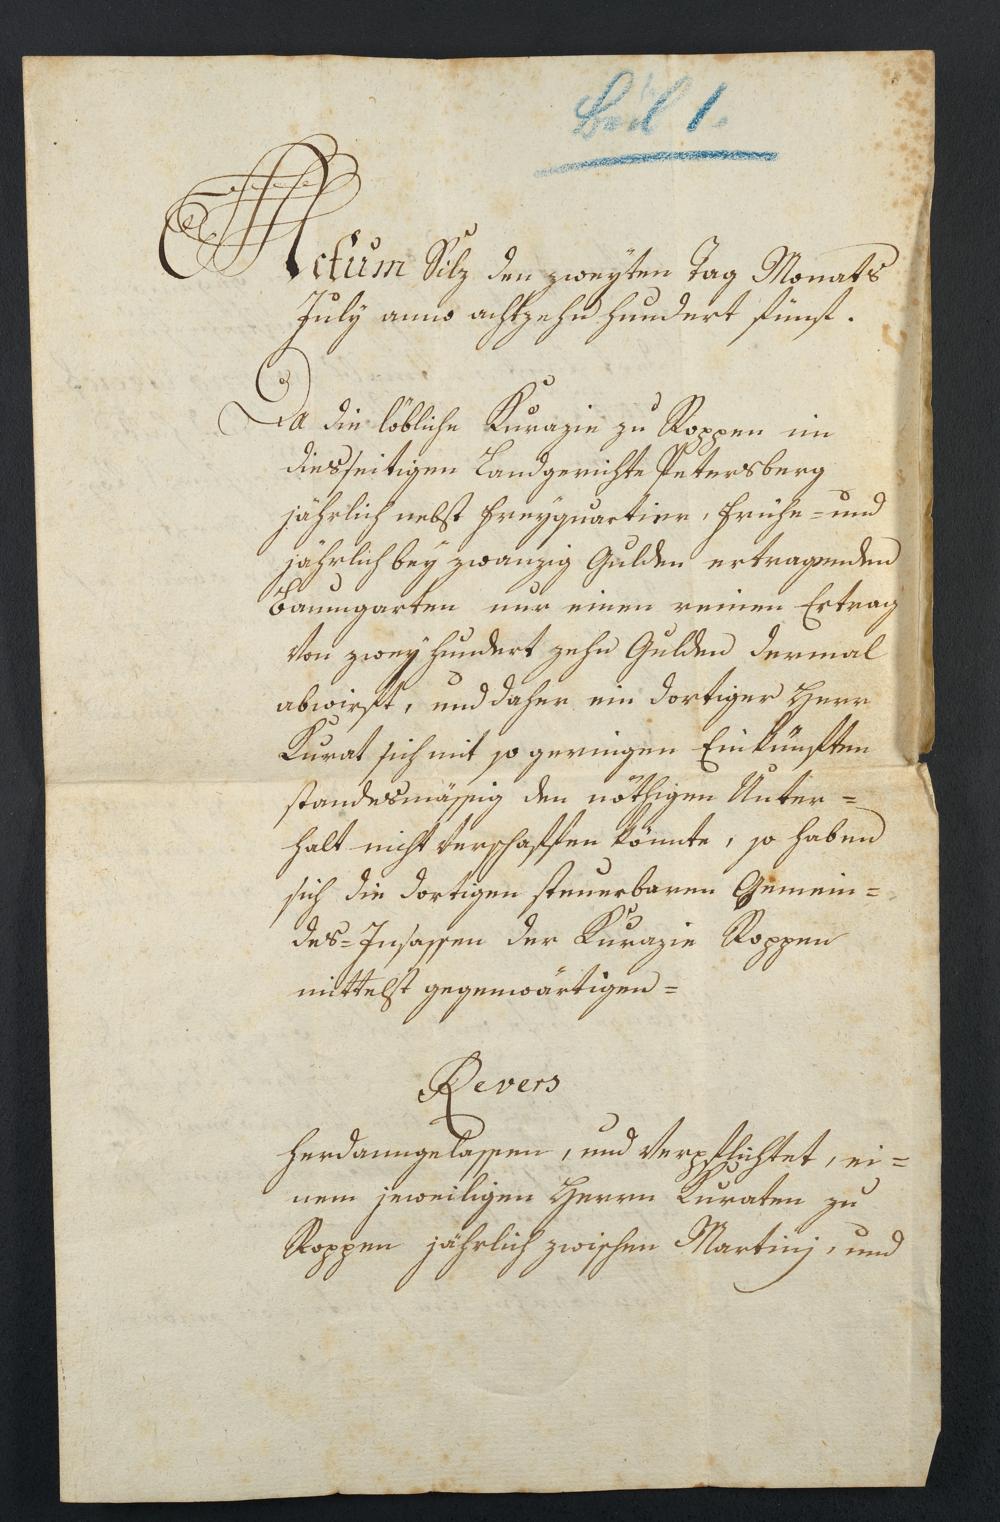 Beil 1.
Actum Silz den zweyten Tag Monats
July anno achtzehn hundert fünf.
Da die löbliche Kurazie zu Roppen im
diesseitigen Landgerichte Petersberg
jährlich nebst Freyquartier, Frühe- und
jährlich bey zwanzig Gulden ertragenden
Baumgarten nur einen reinen Ertrag
von zwey hundert zehn Gulden dermal
abwirft, und daher ein dortiger Herr
Kurat sich mit so geringen Einkünften
standesmässig den nöthigen Unter=
halt nicht verschaffen könnte, so haben
sich die dortigen steuerbaren Gemein=
des=Insassen der Kurazie Roppen
mittelst gegenwärtigen=
Revers
herdanngelassen, und verpflichtet, ei=
nem jeweiligen Herrn Kuraten zu
Roppen jährlich zwischen Martinj, und